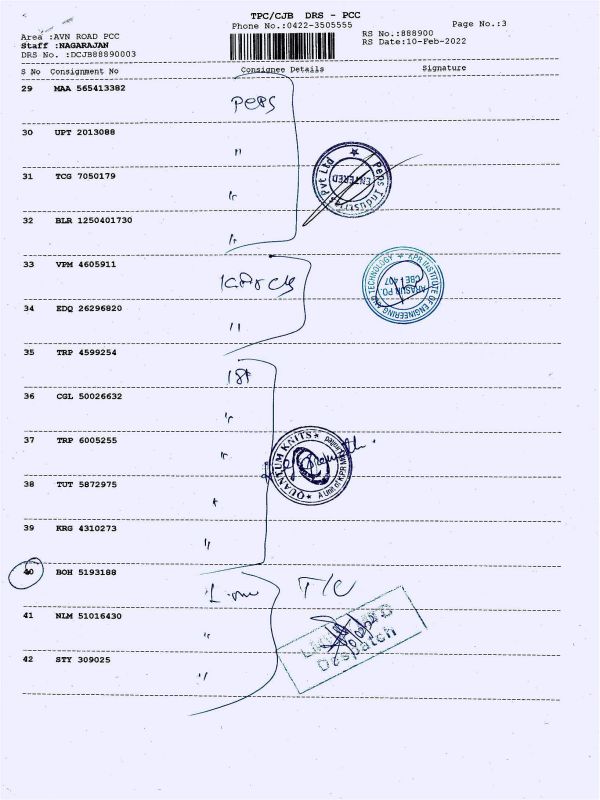 TPC/CJB DRS - PCC
Phone No.:0422-3505555
Page No.:3
Area :AVN ROAD PCC
RS No.:888900
Staff :NAGARAJAN
RS Date:10-Feb-2022
DRS No. :DCJB88890003
S No Consignment No Consignee Details Signature
29 MAA 565413382
Peps
30 UPT 2013088 "
31 TCG 7050179 "
32 BLR 1250401730 "
Peps Industries Pvt Ltd
ENTERED
33 VPM 4605911
34 EDQ 26296820 "
KPR INSTITUTE OF ENGINEERING AND TECHNOLOGY
ARASUR PO
CBE - 407
35 TRP 4599254
36 CGL 50026632 "
37 TRP 6005255 "
38 TUT 5872975 "
39 KRG 4310273 "
QUANTUM KNITS
A unit of KPR Mill Limited
40 BOH 5193188
T/C
41 NLM 51016430 "
42 STY 309025 "
Despatch